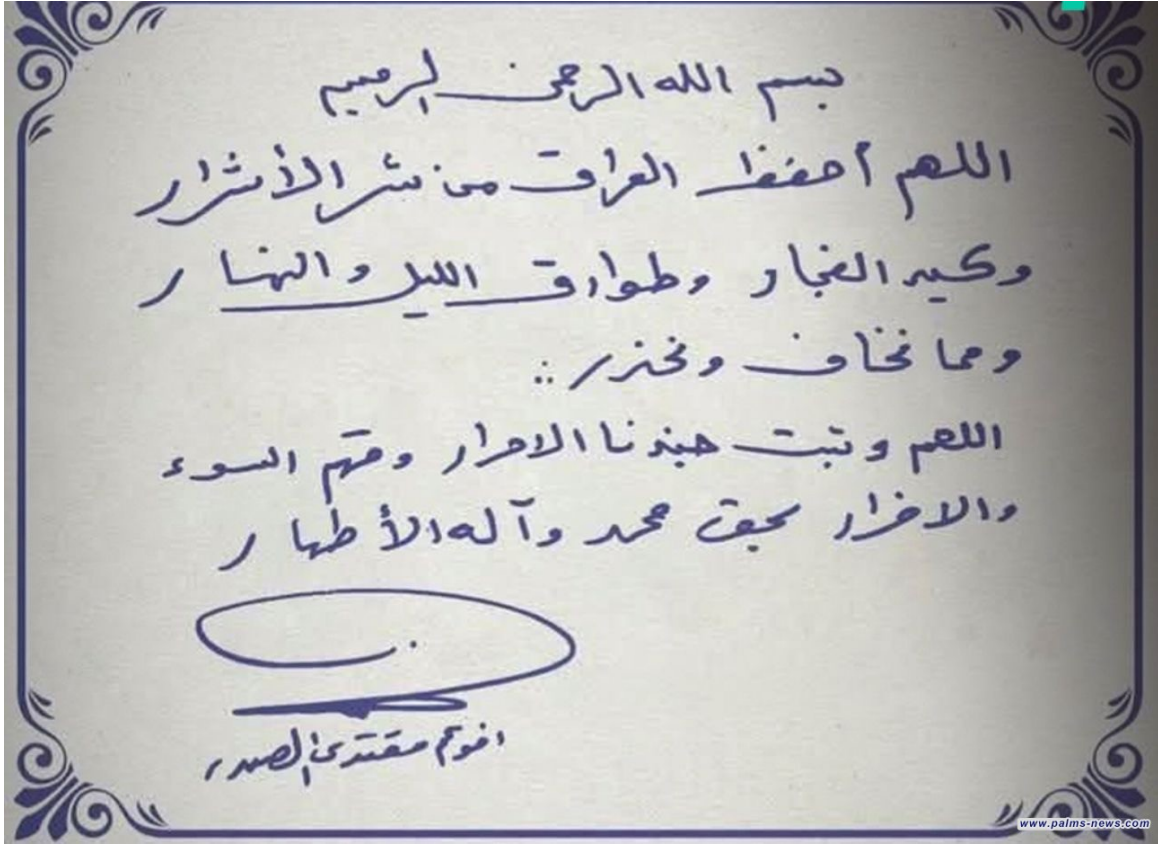 بسم الله الرحمن الرحيم
اللهم أحفظ العراق من شر الأشرار
وكيد الفجار وطوارق الليل والنهار
ومما نخاف ونحذر ..
اللهم وثبت جندنا الاحرار وقهم السوء
والاضرار بحق محمد وآله الأطهار
اخوكم مقتدى الصدر
www.palms-news.com